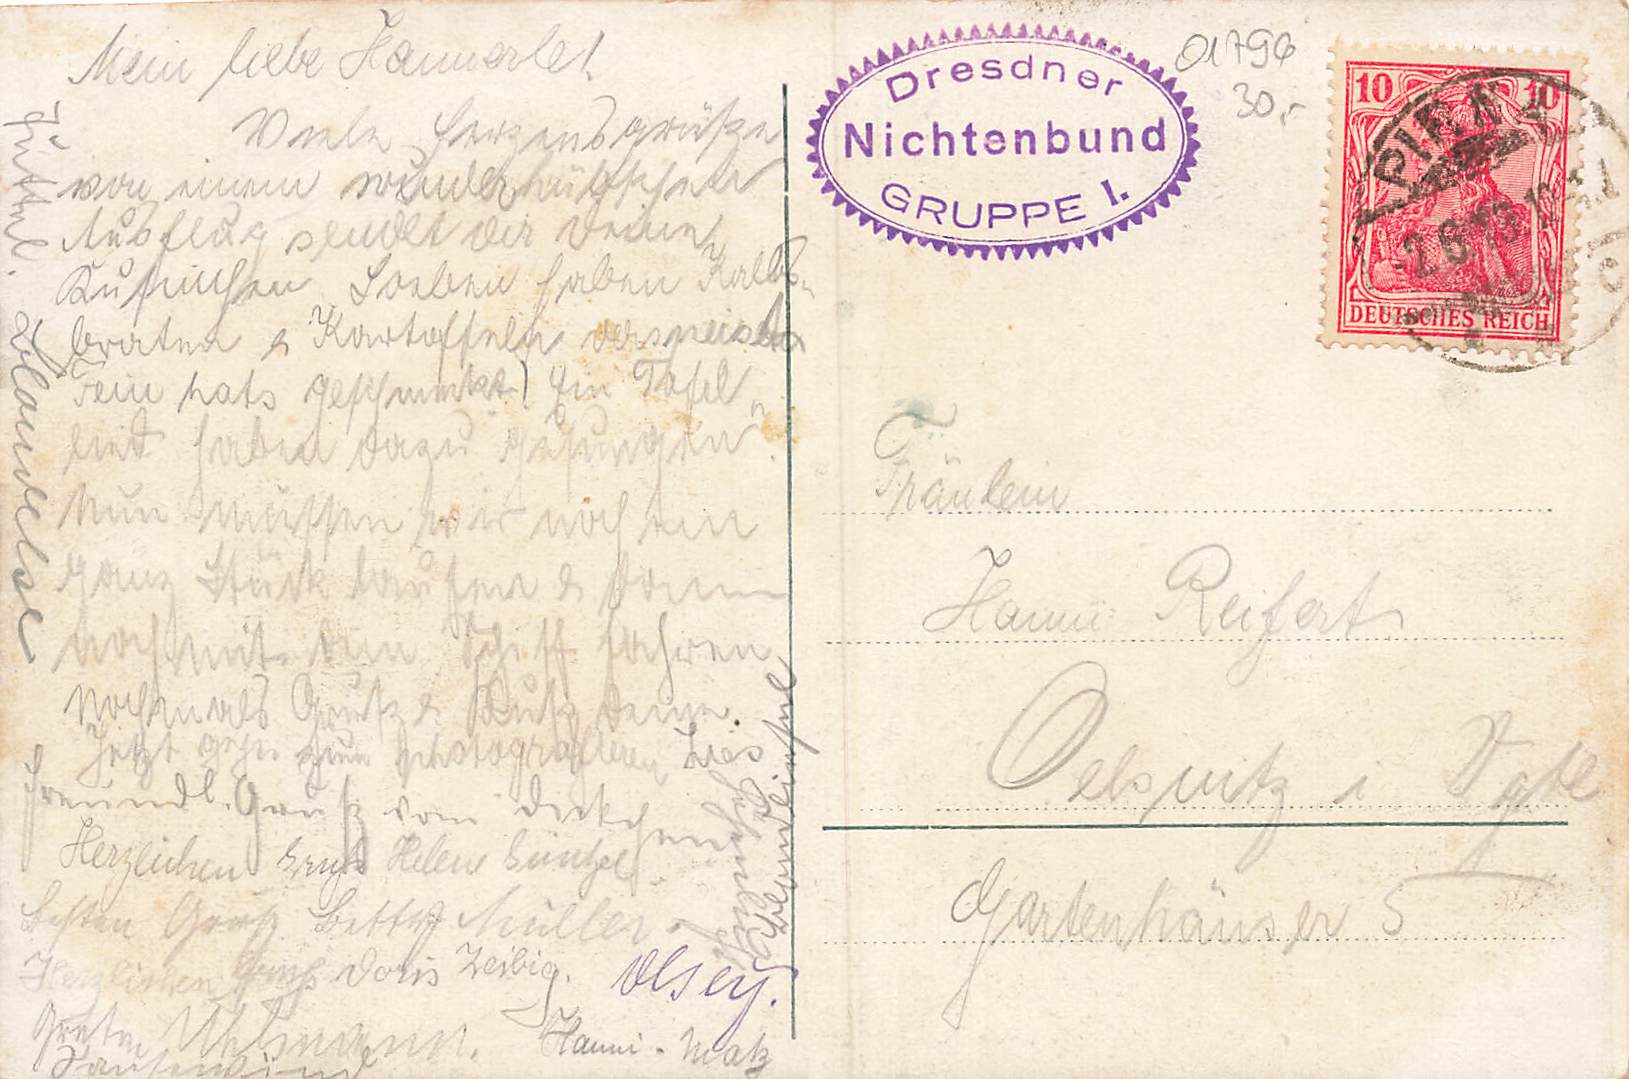 Mein liebe Hannerle!
Viele Herzensgrüße
von einem wunderhübschen
Ausflug sendet dir Deine
Kusinchen. Soeben haben Kalbs-
braten & Kartoffeln verspeist
Fein hats geschmeckt! Ein Tafel-
lied haben dazu gesungen.
Nun müssen wir noch ein
ganz Stück laufen & dann
noch mit dem Schiff fahren
Nochmals Gruß & Kuß Deine
Jetzt gehts zum photografieren Lies
Freundl. Gruß vom Dickchen
Herzlichen Gruß Helene Güntzel.
Besten Gruß Betty Müller.
Herzlichen Gruß Doris Leibig.
Olsey.
Grete Uhlmann.
Hanni - Matz
Dresdner
Nichtenbund
GRUPPE I.
01796
30,-
10 10
DEUTSCHES REICH
PIRNA
2.6.13.12
Fräulein
Hanni Reifert
Oelsnitz i Vgtl
Gartenhäuser 5